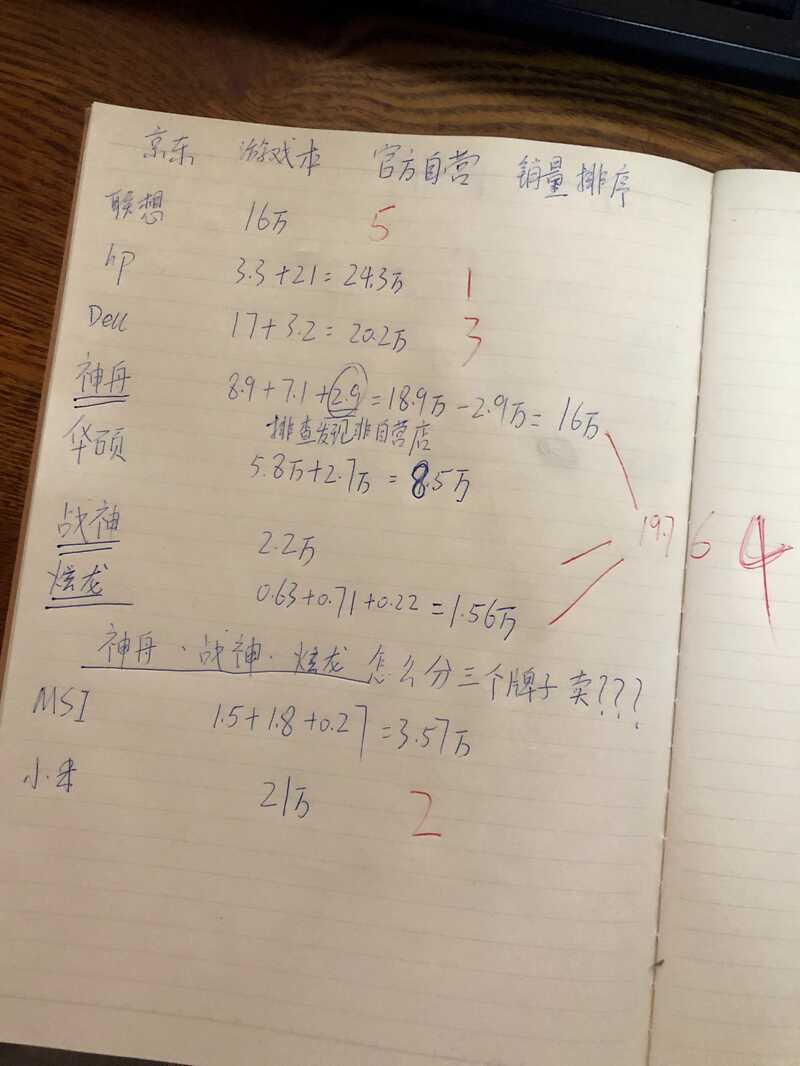 京东 游戏本 官方自营 销量排序
联想 16万 5
hp 3.3+21=24.3万 1
Dell 17+3.2=20.2万 3
神舟 8.9+7.1+2.9=18.9万-2.9万=16万
排查发现非自营店
华硕 5.8万+2.7万=8.5万
19.76 4
战神 2.2万
炫龙 0.63+0.71+0.22=1.56万
神舟·战神·炫龙怎么分三个牌子卖???
MSI 1.5+1.8+0.27=3.57万
小米 21万 2